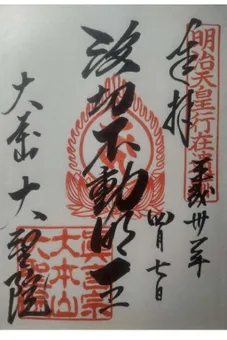 明治天皇行在所
奉拝
平成卅年
四月七日
波切不動明王
大本山 大聖院
真言宗
大本山
大聖院